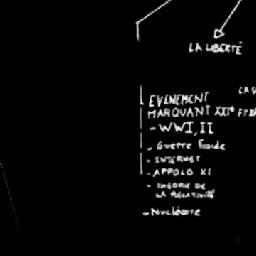 LA LIBERTÉ
EVENEMENT
MARQUANT XXe
- WWI, II
- Guerre froide
- INTERNET
- APPOLO XI
- THÉORIE DE
LA RELATIVITÉ
- Nucléaire